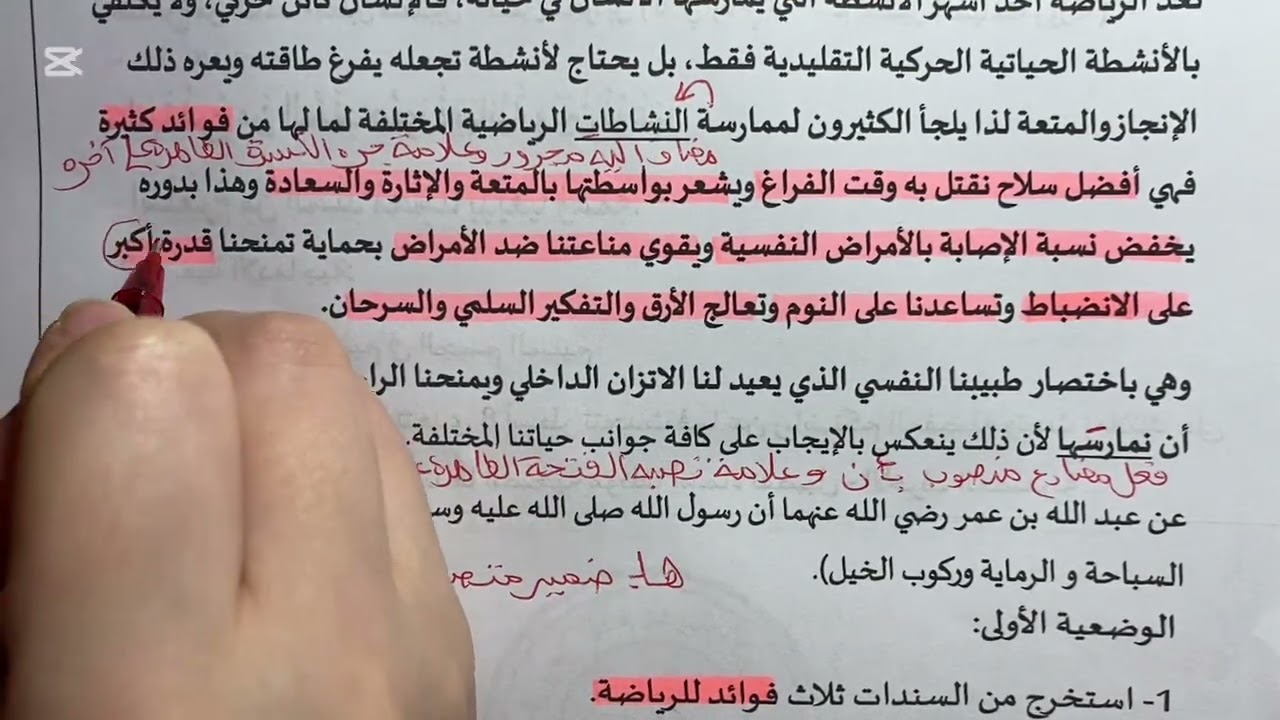 تعد الرياضة أحد أشهر الأنشطة التي يمارسها الإنسان في حياته، فالإنسان كائن حركي، ولا يكتفي
بالأنشطة الحياتية الحركية التقليدية فقط، بل يحتاج لأنشطة تجعله يفرغ طاقته ويعره ذلك
الإنجاز والمتعة لذا يلجأ الكثيرون لممارسة النشاطات الرياضية المختلفة لما لها من فوائد كثيرة
مضاف إليه مجرور وعلامة جره الكسرة الظاهرة على آخره
فهي أفضل سلاح نقتل به وقت الفراغ ويشعر بواسطتها بالمتعة والإثارة والسعادة وهذا بدوره
يخفض نسبة الإصابة بالأمراض النفسية ويقوي مناعتنا ضد الأمراض بحماية تمنحنا قدرة أكبر
على الانضباط وتساعدنا على النوم وتعالج الأرق والتفكير السلبي والسرحان.
وهي باختصار طبيبنا النفسي الذي يعيد لنا الاتزان الداخلي ويمنحنا الرا
أن نمارسها لأن ذلك ينعكس بالإيجاب على كافة جوانب حياتنا المختلفة.
فعل مضارع منصوب بأن وعلامة نصبه الفتحة الظاهرة
عن عبد الله بن عمر رضي الله عنهما أن رسول الله صلى الله عليه وس
ها: ضمير متص
السباحة و الرماية وركوب الخيل).
الوضعية الأولى:
1- استخرج من السندات ثلاث فوائد للرياضة.